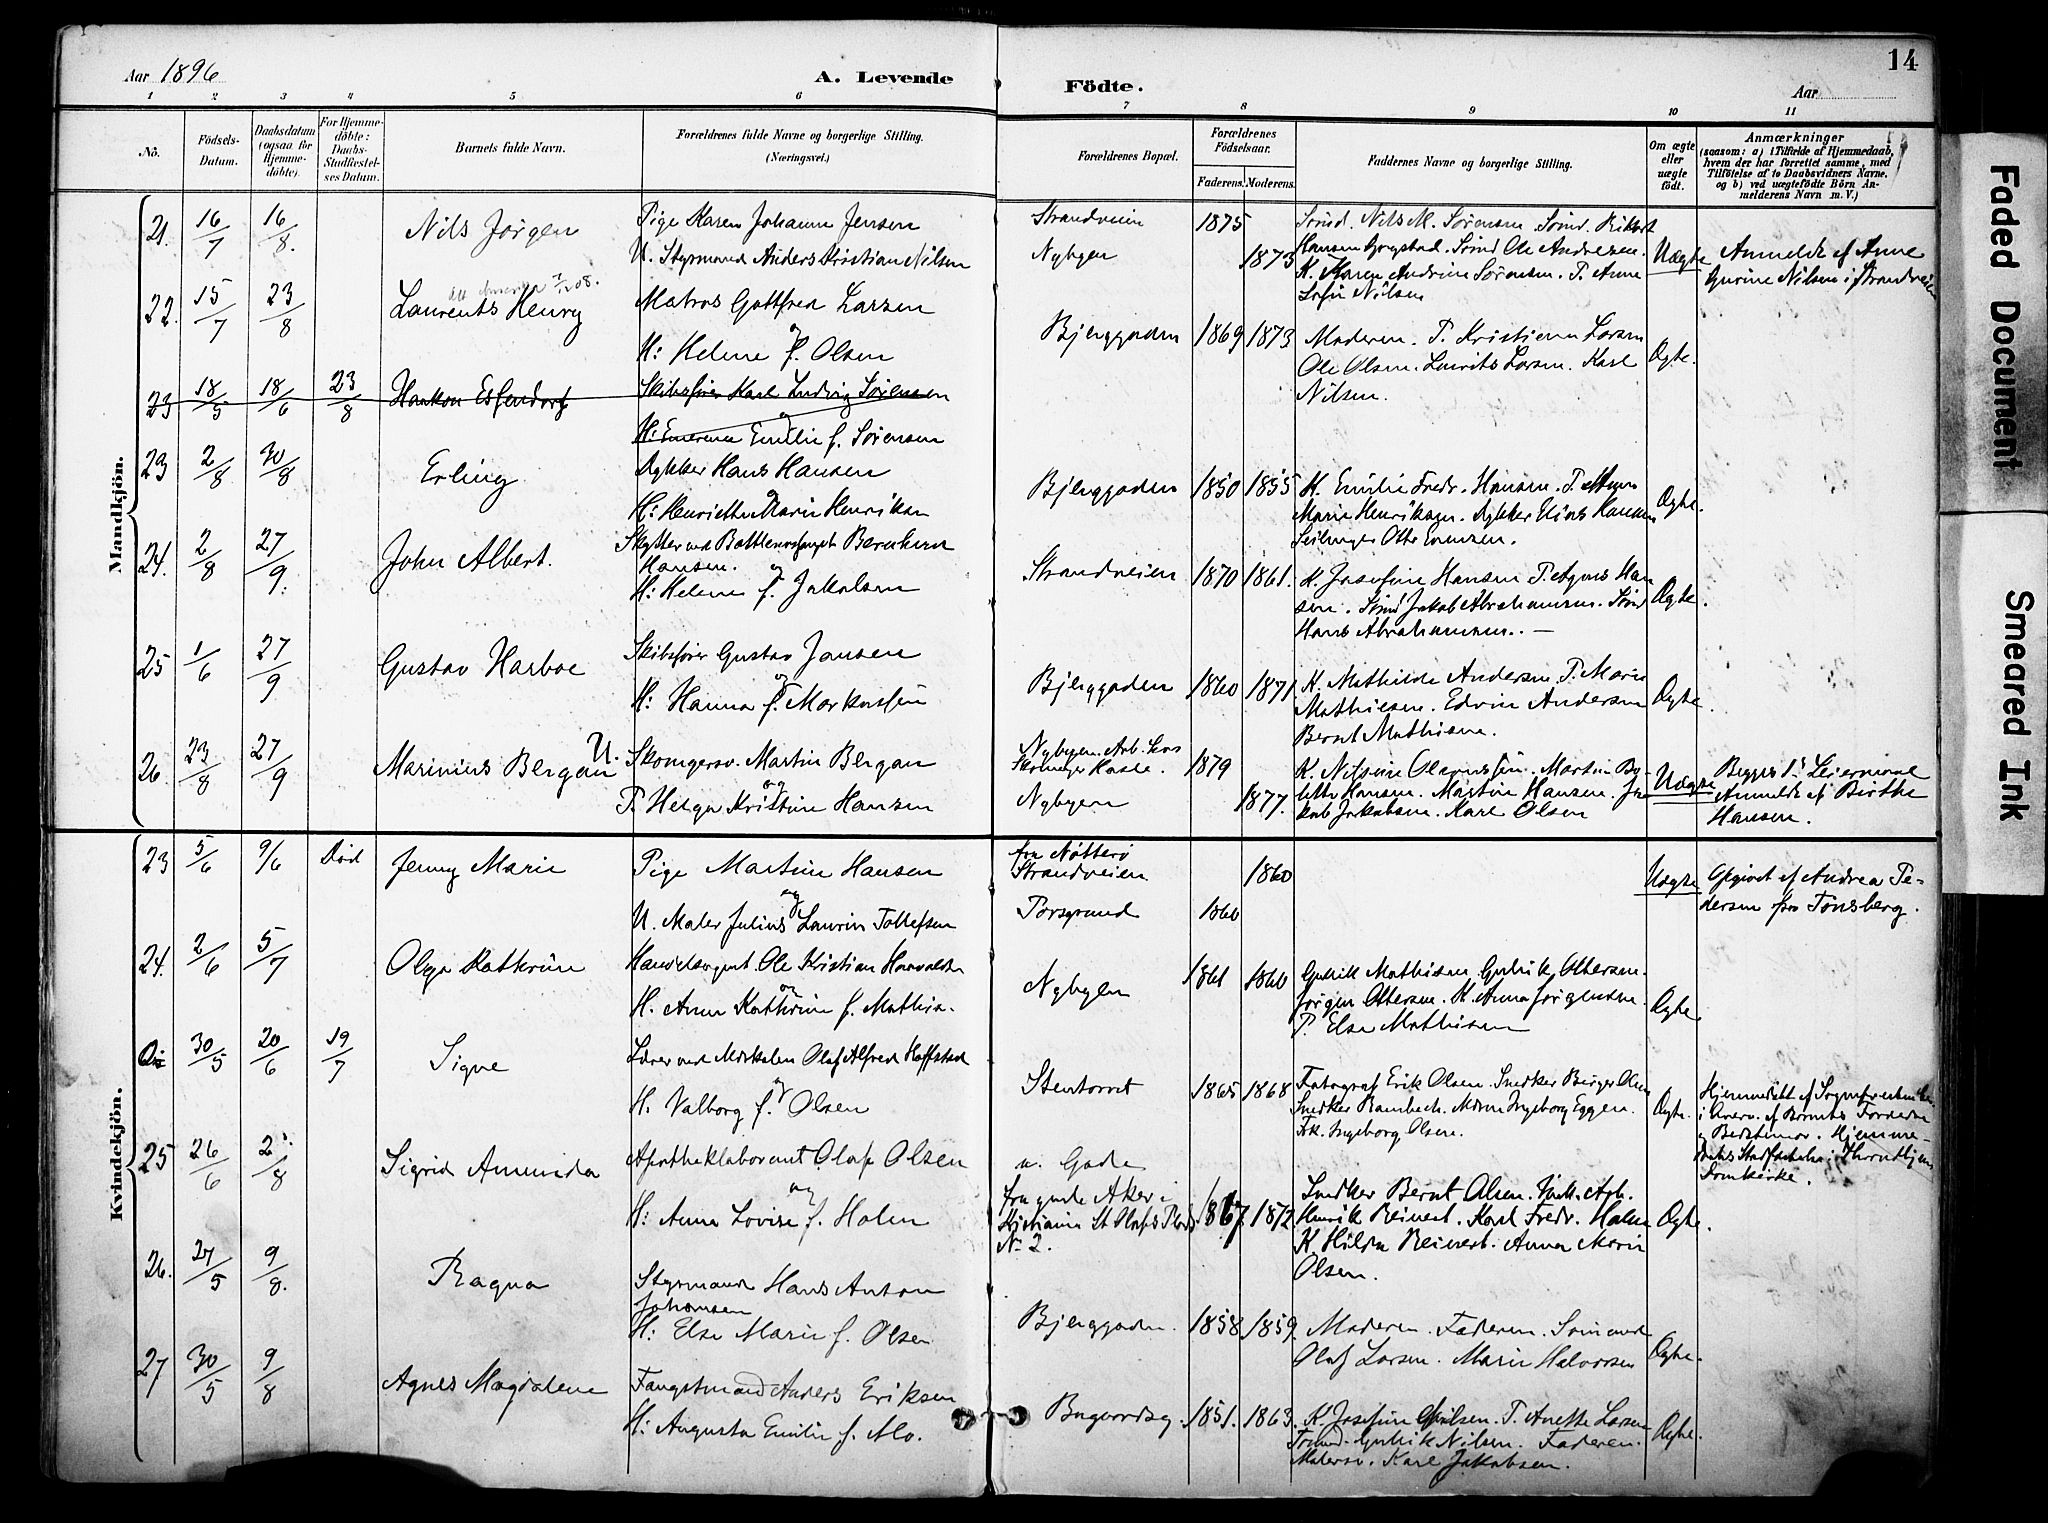 Aar 1896
A. Levende
Födte.
Aar
14
1 2 3 4 5 6 7 8 9 10 11
No.
Födsels-Datum.
Daabsdatum (ogsaa for Hjemme-döbte).
For Hjemme-döbte: Daabs-Stadfæstel-ses Datum.
Barnets fulde Navn.
Forældrenes fulde Navne og borgerlige Stilling.
(Næringsvei.)
Forældrenes Bopæl.
Forældrenes Födselsaar.
Faderens. Moderens.
Faddernes Navne og borgerlige Stilling.
Om ægte eller uægte födt.
Anmærkninger
(saasom: a) i Tilfælde af Hjemmedaab, hvem der har forrettet samme, med Tilföielse af to Daabsvidners Navne, og b) ved uægtefödte Börn An-melderens Navn m. V.)
Mandkjön.
21. 16/7 16/8. Nils Jørgen
Pige Karen Johanne Jensen
U. Styrmand Anders Kristian Nilsen
Strandveien 1875
Nybyen 1873
Sømd. Nils M. Sørensen. Sømd. Rikard
Hansen Gogstad. Sømd Ole Andresen.
K. Maren Andrine Sørensen. P. Anne
Sofie Nilsen
Uægte
Anmeldt af Anne
Gurine Nilsen i Strandveien
22. 15/7 23/8 Laurents Henry
Matros Gottfred Larsen
og
H: Helene f. Olsen
Bjerggaden 1869 1873
Moderen. P. Kristiane Larsen
Ole Olsen. Laurits Larsen. Karl
Nilsen.
Ægte.
23 18/5 18/6 23/8 Haakon Esfendorf
Skibsfører Karl Ludvig Sørensen
og
H: Emerence Emilie f. Sørensen
23 2/8 30/8 Erling
Dykker Hans Hansen
og
H: Henriette Marie Henriksen
Bjerggaden 1850 1855
K. Emilie Fredr. Hansen. P. Anna
Marie Henriksen. Dykker Elias Hansen
Seilmager Otto Evensen.
Ægte.
24. 2/8 27/9. John Albert.
Skytter ved Bottlenosfanget Bernhard
Hansen.
og
H: Helene f. Jakobsen
Strandveien 1870 1861.
K. Josefine Hansen P. Agnes Han
sen. Sømd Jakob Abrahamsen. Sømd
Hans Abrahamsen. —
Ægte.
25 1/6 27/9 Gustav Harboe
Skibsfører Gustav Jansen
og
H: Hanna f. Markussen
Bjerggaden 1860 1871.
K. Mathilde Andersen P. Marie
Mathisen. Edvin Andersen
Bernt Mathisen.
Ægte.
26. 23/8 27/9 Marinius Bergan
U. Skomgersv. Martin Bergan
og
P. Helga Kristine Hansen
Nybyen. Arb. hos
Skomager Kasle. 1879
Nybyen 1877.
K. Nilsine Olavessen. Martin By-
Hansen. Martin Hansen. Ja
kob Jakobsen. Karl Olsen
Uægte
Begges 1ste Leiermaal
Anmeldt af Birthe
Hansen.
Kvindekjön.
23 5/6 9/6 Död Jenny Marie
Pige Martine Hansen
og
U. Maler Julius Laurin Tollefsen
fra Nøtterø
Strandveien 1860
Porsgrund 1860
Uægte
Opgivet af Andrea Pe-
dersen fra Tønsberg.
24. 2/6 5/7 Olga Kathrine
Handelsagent Ole Kristian
og
H. Anne Kathrine f. Mathis.
Nybyen 1861 1860
Gulrik Mathisen Gulrik Ottersen.
Jørgen Ottersen. K. Anna Jørgensen.
P. Else Mathisen
Ægte.
30/5 20/6 19/7 Signe
Lærer ved Olaf Alfred Hoffstad
og
H. Valborg f. Olsen
Stentorvet 1865 1868
Fotograf Erik Olsen. Snedker Birger Olsen
Snedker Bambech. Ingeborg Eggen.
Frk. Ingeborg Olsen.
Ægte.
Hjemmedøbt af Sognepresten her
i Overv. af Barnets Forældre
og Bedstemor. Hjemme-
daabs Stadfæstelse i Throndhjems
Domkirke.
25 26/6 2/8 Sigrid Amunda
Apotheklaborant Olaf Olsen
og
H: Anna Lovise f. Holm
n. Gade
fra gamle Aker i
Kristiania St Olafs Plads
No 2.
1867. 1872
Snedker Bernt Olsen. Vædk. Arb.
Henrik Reinert. Karl Fredr. Holm
K. Hilda Reinert. Anna Marie
Olsen.
Ægte.
26. 27/5 9/8. Ragna
Styrmand Hans Anton
Johansen
H: Else Marie f. Olsen
Bjerggaden. 1858 1859.
Moderen. Faderen. Sømand
Olaf Larsen. Marie Halvorsen
Ægte.
27 30/5 9/8 Agnes Magdalene
Fangstmand Anders Eriksen
H: Augusta Emilie f. Mo.
Bugaardsg. 1851. 1863.
K. Josefine Nilsen. P. Anette Larsen
Tømmd. Gulrik Nilsen. Faderen.
Malersv. Karl Jakobsen.
Ægte.
Faded Document
Smeared Ink